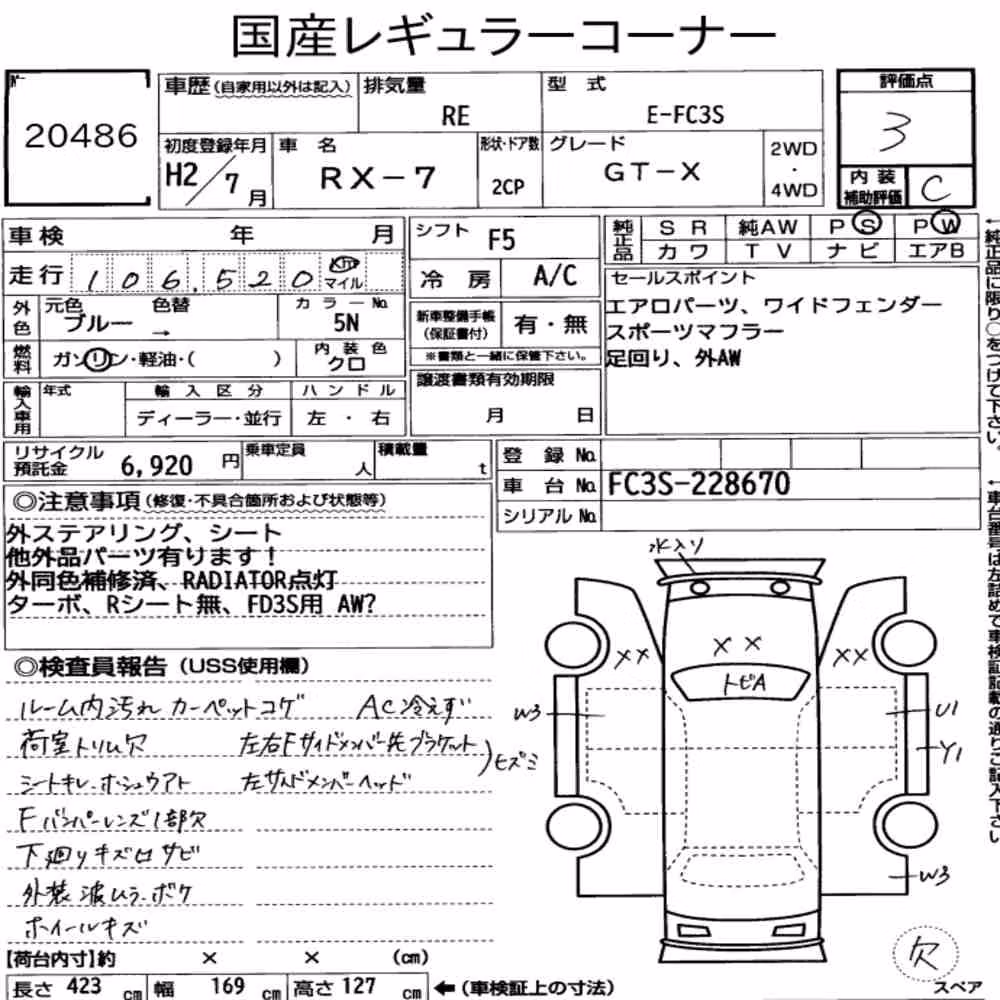 国産レギュラーコーナー
20486
車歴 (自家用以外は記入)
排気量 RE
型式 E-FC3S
評価点 3
初度登録年月 H2/7月
車名 RX-7
形状・ドア数 2CP
グレード GT-X
2WD・4WD
内装補助評価 C
車検 年 月
シフト F5
純正品 SR 純AW PS PW
カワ TV ナビ エアB
走行 106,520 Km マイル
冷房 A/C
セールスポイント
エアロパーツ、ワイドフェンダー
スポーツマフラー
足回り、外AW
外色 元色 ブルー 色替 → カラーNo. 5N
新車整備手帳(保証書付) 有・無
※書類と一緒に保管下さい。
燃料 ガソリン・軽油・( )
内装色 クロ
譲渡書類有効期限 月 日
輸入車用 年式 輸入区分 ハンドル
ディーラー・並行 左・右
リサイクル預託金 6,920円
乗車定員 人
積載量 t
登録No.
車台No. FC3S-228670
シリアルNo.
◎注意事項(修復・不具合箇所および状態等)
外ステアリング、シート
他外品パーツ有ります!
外同色補修済、RADIATOR点灯
ターボ、Rシート無、FD3S用 AW?
◎検査員報告 (USS使用欄)
ルーム内汚れ カーペットコゲ AC冷えず
荷室トリム欠 左右Fサイドメンバー先ブラケット
シートキレ・ホシュウアト 左サイドメンバーヘッド
)ヒズミ
Fバンパーレンズ1部欠
下廻りキズ凹サビ
外装波ムラ・ボケ
ホイールキズ
水入り
XX
XX
XX
トビA
W3
U1
Y1
W3
欠
スペア
【荷台内寸】約 × × (cm)
長さ 423 cm 幅 169 cm 高さ 127 cm ←(車検証上の寸法)
←純正品に限り○をつけて下さい。
←車台番号は左詰めで車検証記載の通りご記入下さい